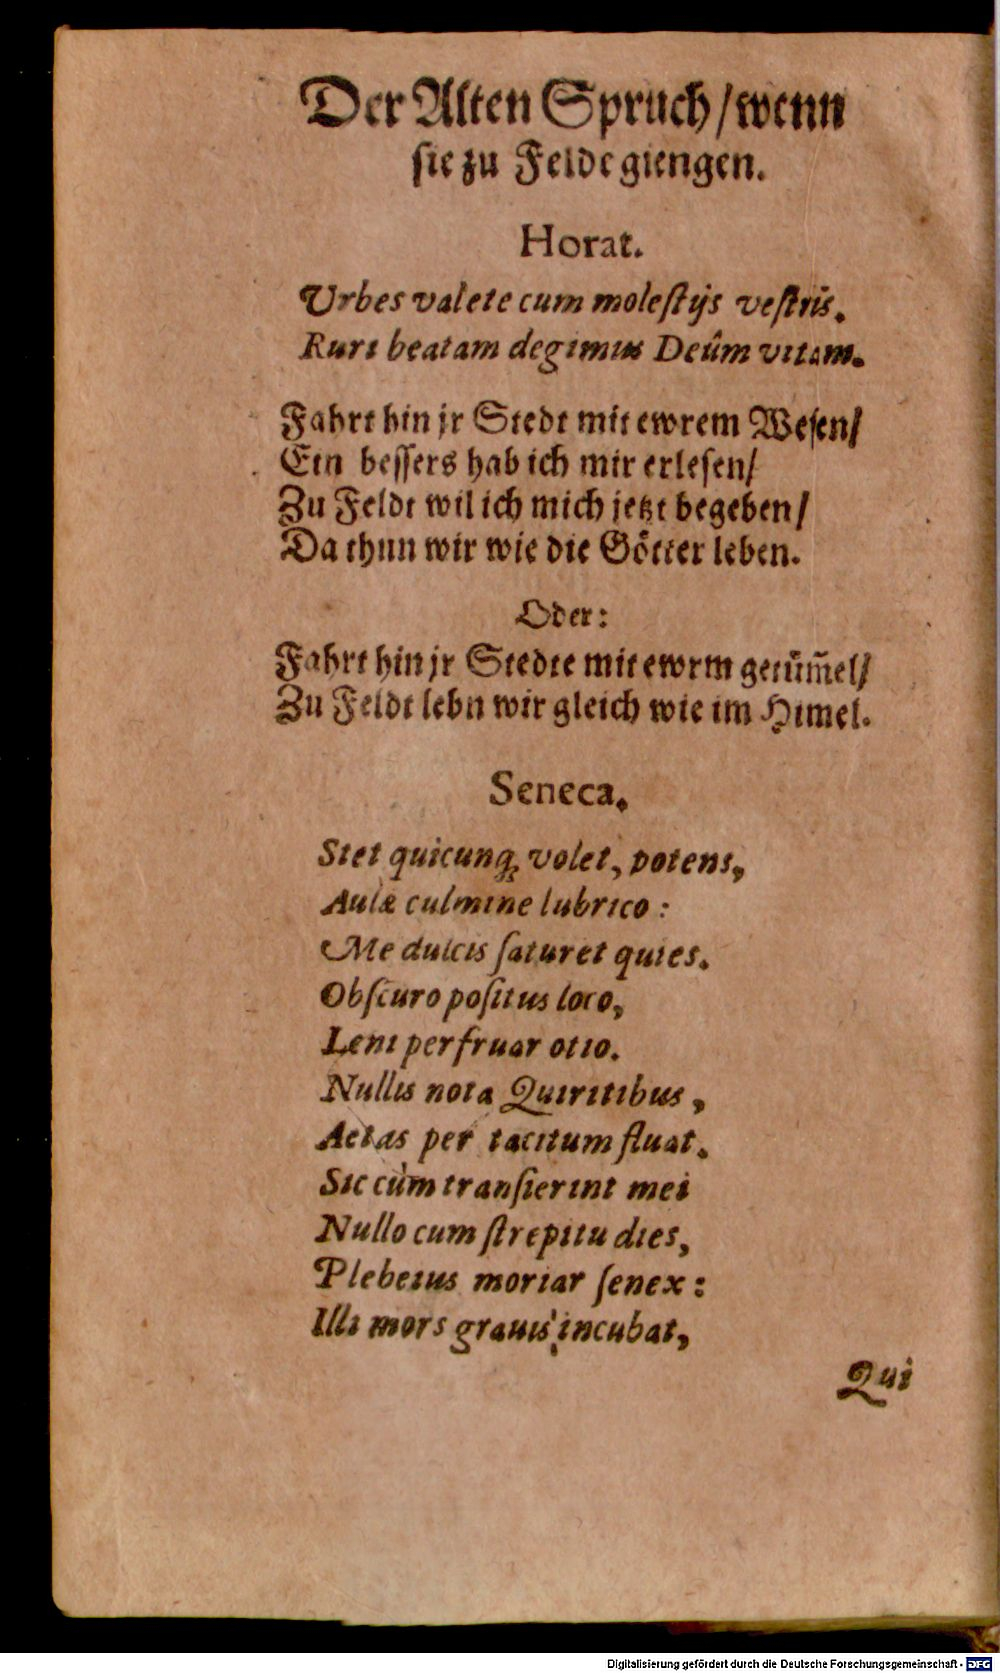 Der Alten Spruch / wenn
sie zu Felde giengen.
Horat.
Urbes valete cum moleſtijs veſtris.
Ruri beatam degimus Deûm vitam.
Fahrt hin jr Stedt mit ewrem Wesen /
Ein bessers hab ich mir erlesen /
Zu Feldt wil ich mich jetzt begeben /
Da thun wir wie die Götter leben.
Oder:
Fahrt hin jr Stedte mit ewrm getüm̃el /
Zu Feldt lebn wir gleich wie im Himel.
Seneca.
Stet quicunq; volet, potens,
Aulæ culmine lubrico:
Me dulcis ſaturet quies.
Obſcuro poſitus loco,
Leni perfruar otio.
Nullis nota Quiritibus,
Aetas per tacitum fluat.
Sic cùm tranſierint mei
Nullo cum ſtrepitu dies,
Plebeius moriar ſenex:
Illi mors grauis incubat,
Qui
Digitalisierung gefördert durch die Deutsche Forschungsgemeinschaft - DFG